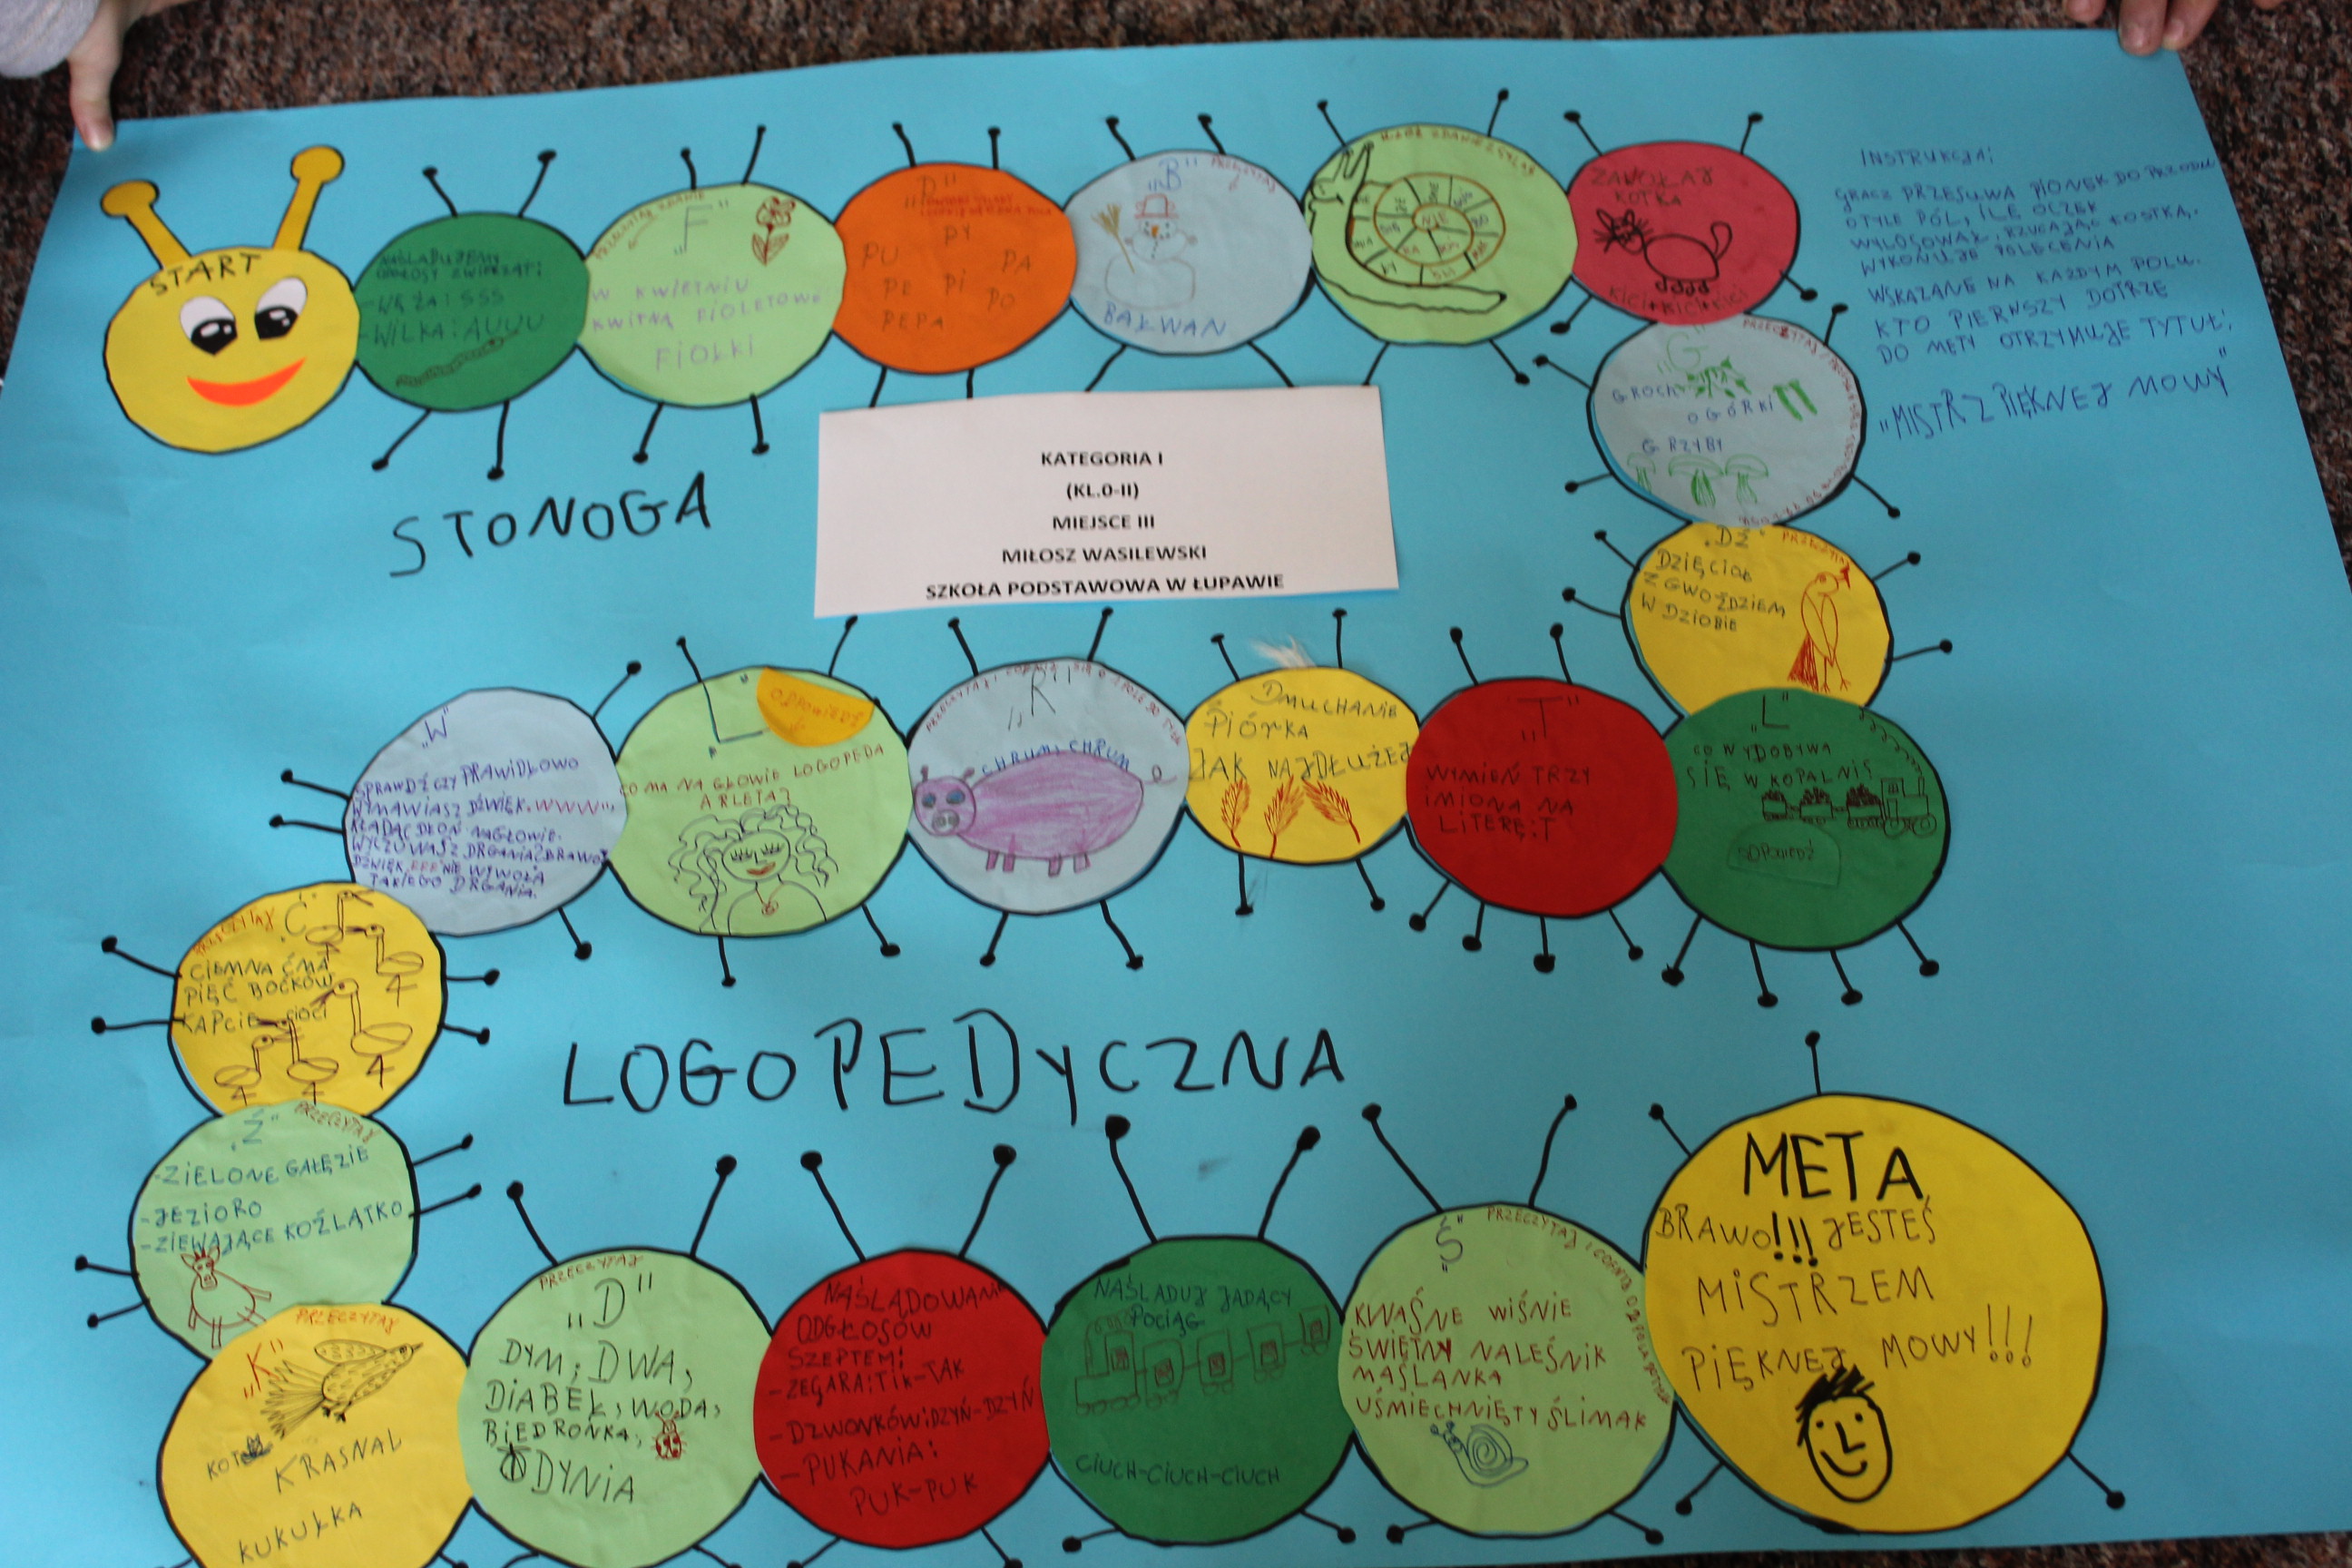 START
NAŚLADUJEMY
ODGŁOSY ZWIERZĄT:
-WĘŻA: SSS
-WILKA: AUUU
PRZECZYTAJ ZDANIE
„F"
W KWIETNIU
KWITNĄ FIOLETOWE
FIOŁKI
„P"
PY
PU PA
PE PI PO
PEPA
„B" PRZECZYTAJ
BAŁWAN
ZAWOŁAJ
KOTKA
KICI+KICI+KICI
INSTRUKCJA:
GRACZ PRZESUWA PIONEK DO PRZODU
O TYLE PÓL, ILE OCZEK
WYLOSOWAŁ, RZUCAJĄC KOSTKĄ.
WYKONUJE POLECENIA
WSKAZANE NA KAŻDYM POLU.
KTO PIERWSZY DOTRZE
DO METY OTRZYMUJE TYTUŁ:
„MISTRZ PIĘKNEJ MOWY"
PRZECZYTAJ
„G"
GROCH
OGÓRKI
GRZYBY
KATEGORIA I
(KL.0-II)
MIEJSCE III
MIŁOSZ WASILEWSKI
SZKOŁA PODSTAWOWA W ŁUPAWIE
STONOGA
„DŹ" PRZECZYTAJ
DZIĘCIOŁ
Z GWOŹDZIEM
W DZIOBIE
„L"
CO WYDOBYWA
SIĘ W KOPALNI?
ODPOWIEDŹ
„T"
WYMIEŃ TRZY
IMIONA NA
LITERĘ: T
DMUCHANIE
PIÓRKA
JAK NAJDŁUŻEJ
„R"
CHRUM, CHRUM
„L"
ODPOWIEDŹ
CO MA NA GŁOWIE LOGOPEDA
ARLETA?
„W"
SPRAWDŹ CZY PRAWIDŁOWO
WYMAWIASZ DŹWIĘK „WWW",
KŁADĄC DŁOŃ NA GŁOWIE.
WYCZUWASZ DRGANIA? BRAWO
DŹWIĘK „FFF" NIE WYWOŁA
TAKIEGO DRGANIA.
PRZECZYTAJ „Ć"
CIEMNA ĆMA
PIĘĆ BOĆKÓW
KAPCIE CIOCI
LOGOPEDYCZNA
„Ź" PRZECZYTAJ
-ZIELONE GAŁĘZIE
-JEZIORO
-ZIEWAJĄCE KOŹLĄTKO
PRZECZYTAJ
„K"
KOT
KRASNAL
KUKUŁKA
PRZECZYTAJ
„D"
DYM, DWA,
DIABEŁ, WODA,
BIEDRONKA,
DYNIA
NAŚLADOWANIE
ODGŁOSÓW
SZEPTEM:
-ZEGARA: TIK-TAK
-DZWONKÓW: DZYŃ-DZYŃ
-PUKANIA:
PUK-PUK
NAŚLADUJ JADĄCY
POCIĄG
CIUCH-CIUCH-CIUCH
„Ś" PRZECZYTAJ I COFNIJ
KWAŚNE WIŚNIE
ŚWIĘTNY NALEŚNIK
MAŚLANKA
UŚMIECHNIĘTY ŚLIMAK
META
BRAWO!!! JESTEŚ
MISTRZEM
PIĘKNEJ MOWY!!!